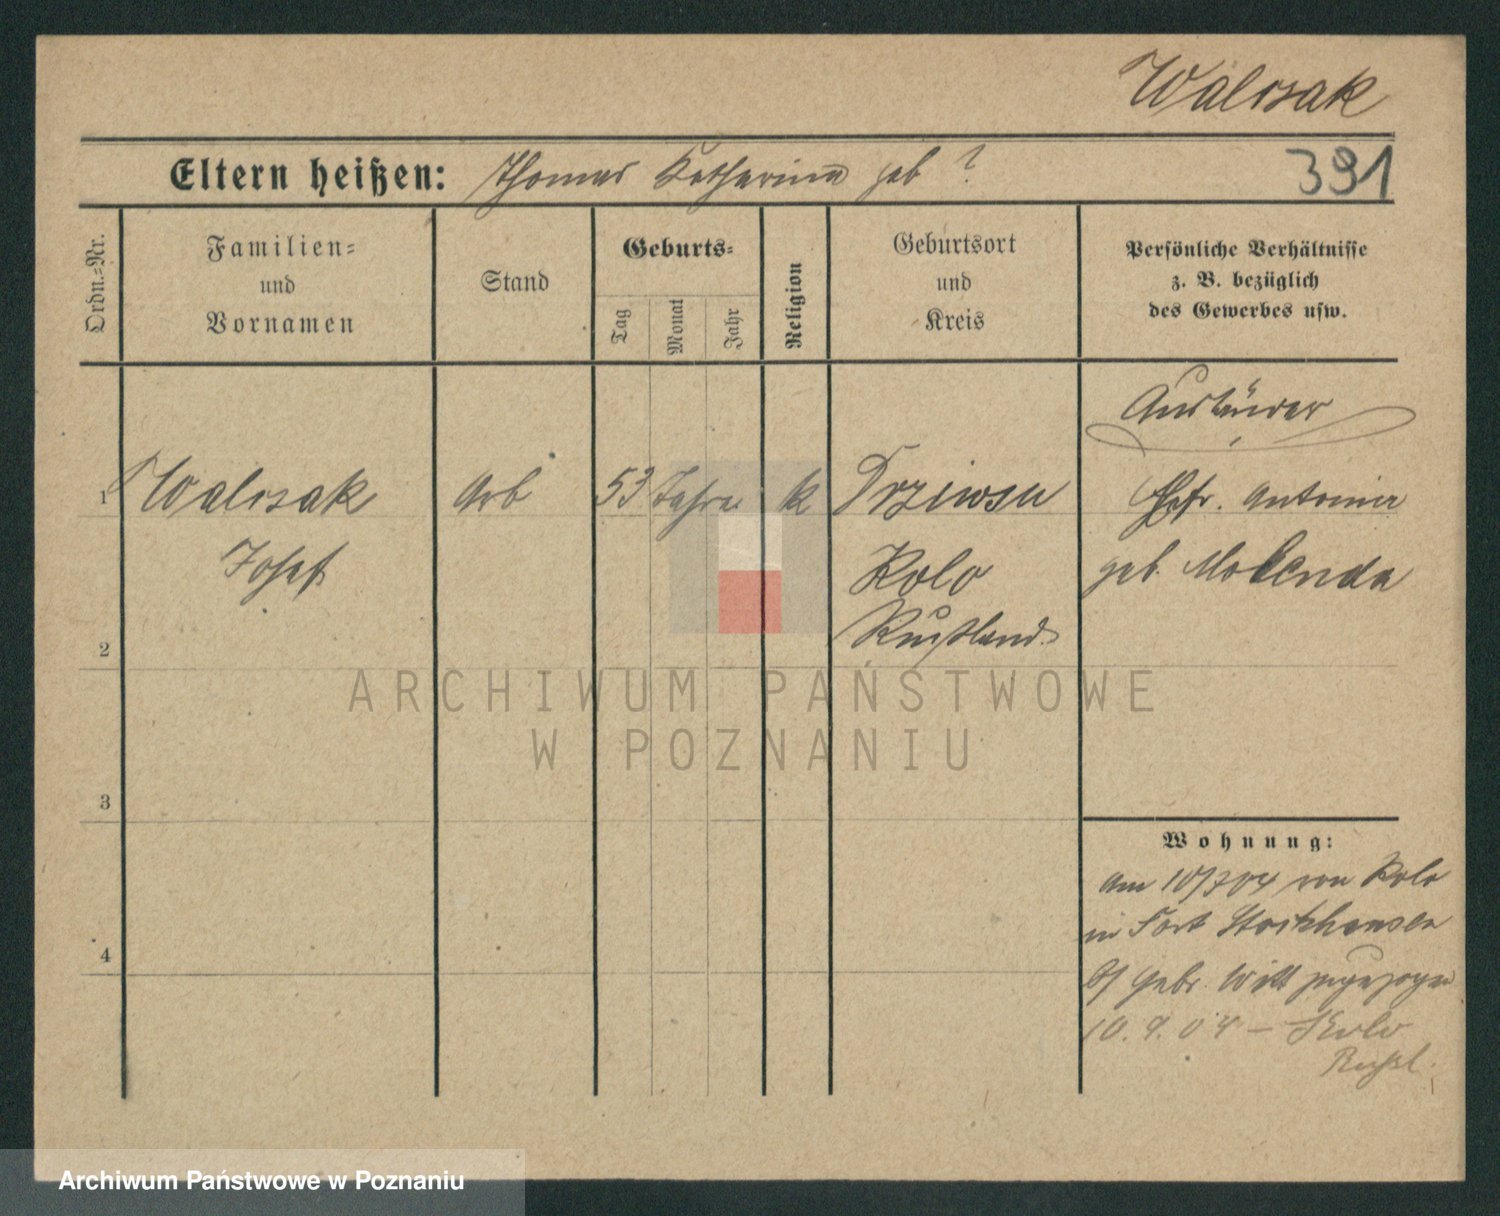 Walczak
Eltern heißen: Thomas Katharina geb ?
391
Ordn.=Nr.
Familien=
und
Vornamen
Stand
Geburts=
Tag
Monat
Jahr
Religion
Geburtsort
und
Kreis
Persönliche Verhältnisse
z. B. bezüglich
des Gewerbes usw.
Ausländer
1 Walczak Arb 53 Jahre k Drziwsu Ehefr. Antonina
Josef Kolo geb. Molenda
Rußland
2
3
4
Wohnung:
Am 10/7 04 von Kolo
in Fort Stockhausen
b/ Gebr. Witt zugezogen
10. 9. 04 – Kolo
Rußl.
ARCHIWUM PAŃSTWOWE
W POZNANIU
Archiwum Państwowe w Poznaniu